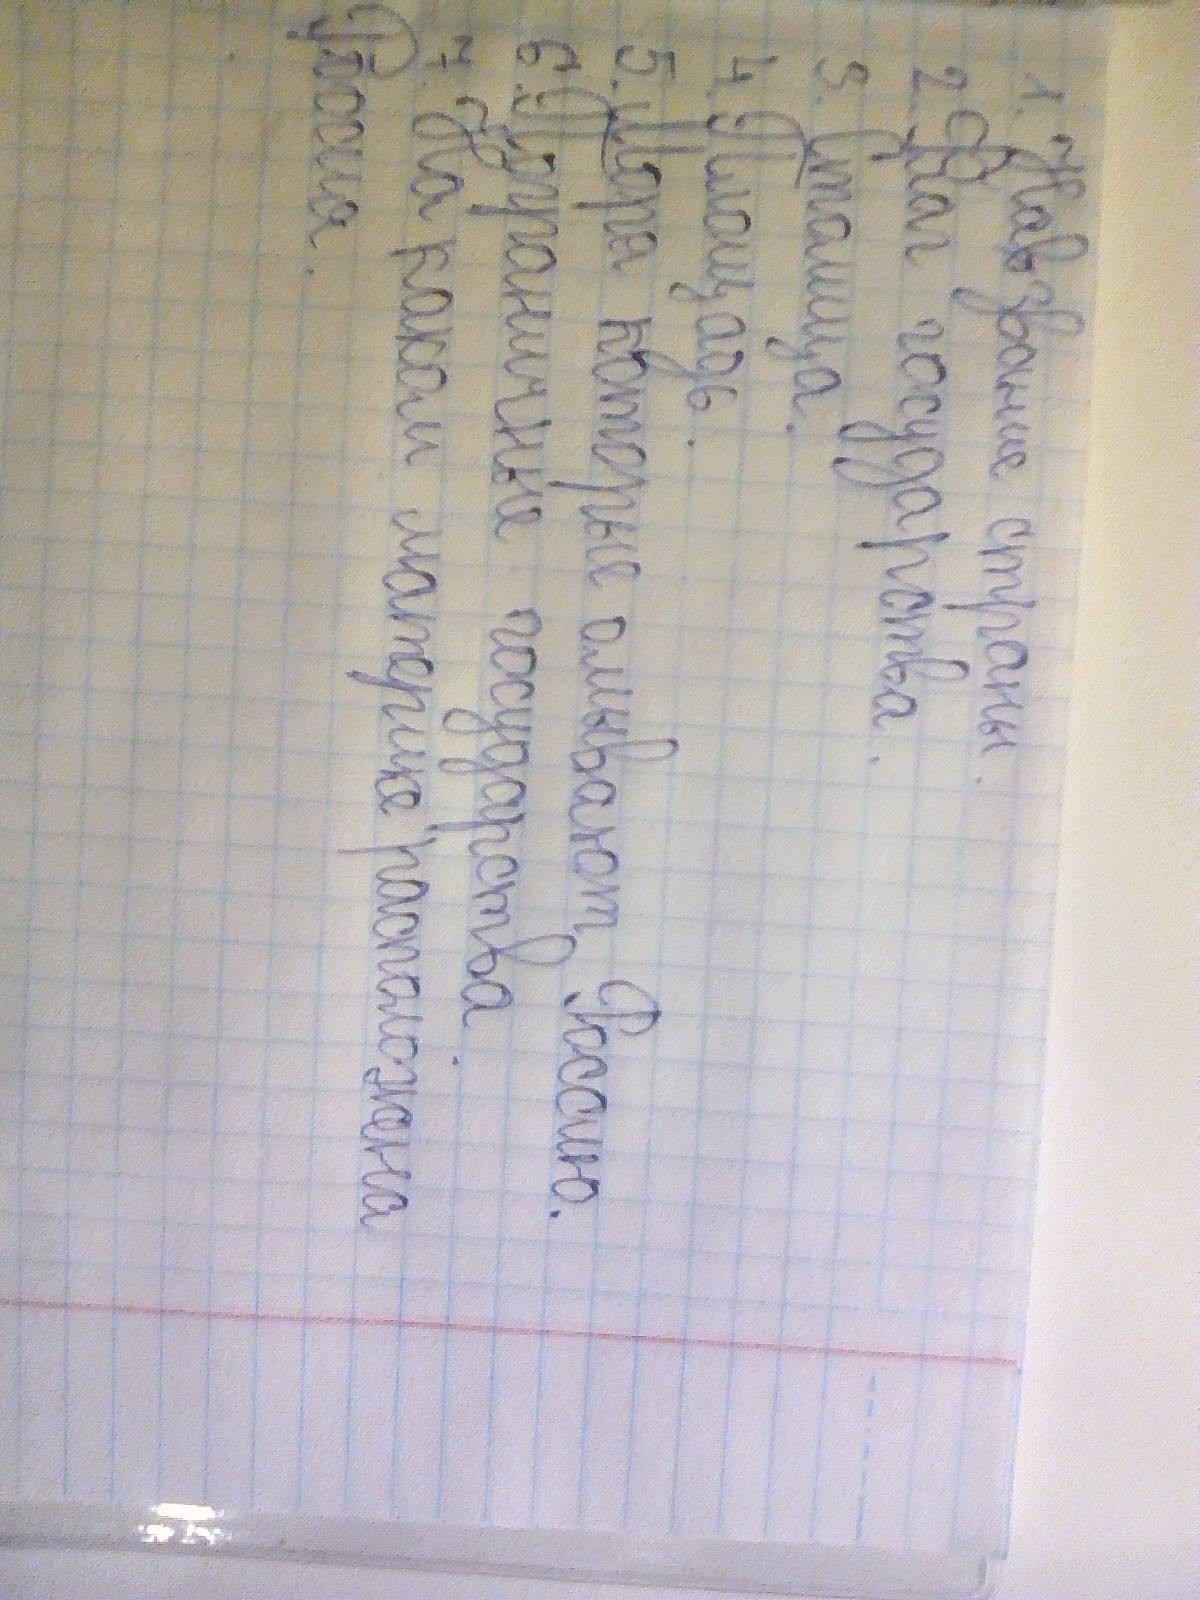 1. Навзвание страны.
2. Флаг государства.
3. Столица.
4. Площадь.
5. Моря которые омывают Россию.
6. Пограничные государства.
7. На каком материке расположена
Россия.